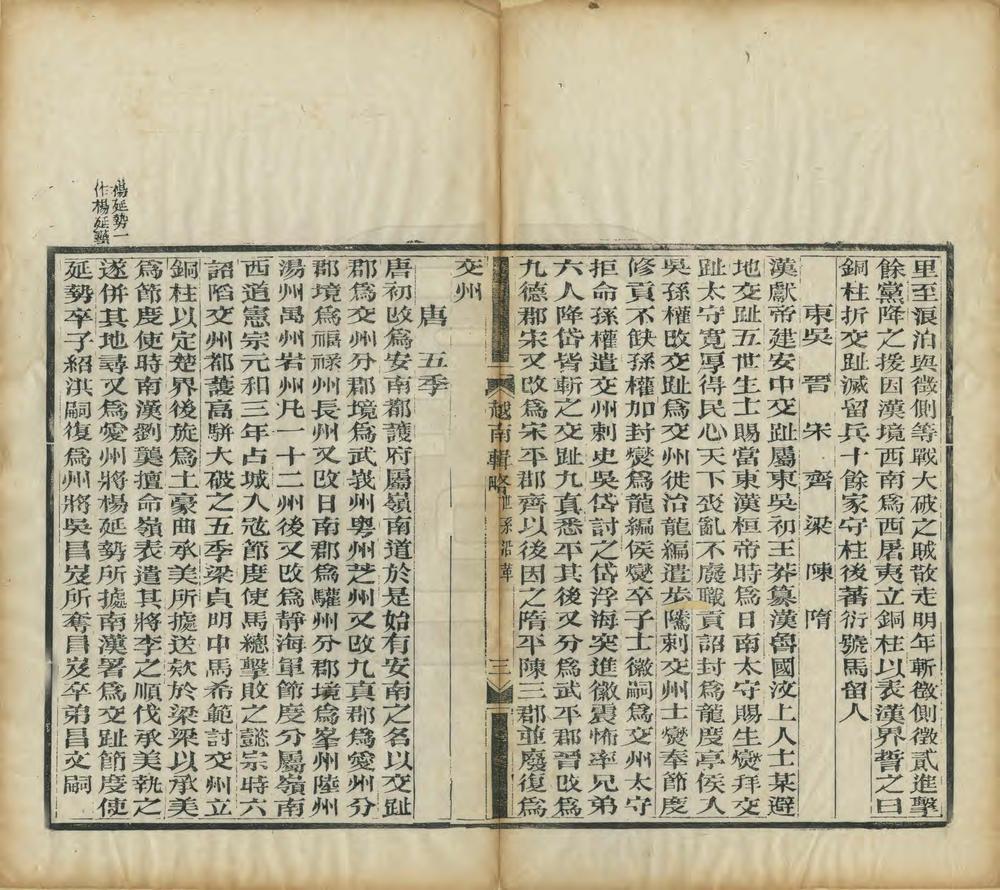 里至浪泊與徵側等戰大破之賊散走明年斬徵側徵貳進擊
餘黨降之援因漢境西南爲西屠夷立銅柱以表漢界誓之曰
銅柱折交趾滅留兵十餘家守柱後蕃衍號馬留人
東吳 晉 宋 齊 梁 陳 隋
漢獻帝建安中交趾屬東吳初王莽篡漢魯國汶上人士某避
地交趾五世生士賜當東漢桓帝時爲日南太守賜生燮拜交
趾太守寬厚得民心天下喪亂不廢職貢詔封爲龍度亭侯入
吳孫權改交趾爲交州徙治龍編遣步隲刺交州士燮奉節度
修貢不缺孫權加封燮爲龍編侯燮卒子士徽嗣爲交州太守
拒命孫權遣交州刺史吳岱討之岱浮海突進徽震怖率兄弟
六人降岱皆斬之交趾九真悉平其後又分爲武平郡晉改爲
九德郡宋又改爲宋平郡齊以後因之隋平陳三郡並廢復爲
越南輯略 世系沿革 三
交州
唐 五季
唐初改爲安南都護府屬嶺南道於是始有安南之名以交趾
郡爲交州分郡境爲武峩州粵州芝州又改九真郡爲愛州分
郡境爲福祿州長州又改日南郡爲驩州分郡境爲峯州陸州
湯州萬州岩州凡一十二州後又改爲靜海軍節度分屬嶺南
西道憲宗元和三年占城入寇節度使馬總擊敗之懿宗時六
詔陷交州都護高駢大破之五季梁貞明中馬希範討交州立
銅柱以定楚界後旋爲土豪曲承美所據送欵於梁梁以承美
爲節度使時南漢劉龑擅命嶺表遣其將李之順伐承美執之
遂併其地尋又爲愛州將楊延勢所據南漢署爲交趾節度使
延勢卒子紹洪嗣復爲州將吳昌岌所奪昌岌卒弟昌文嗣
楊延勢一
作楊延藝